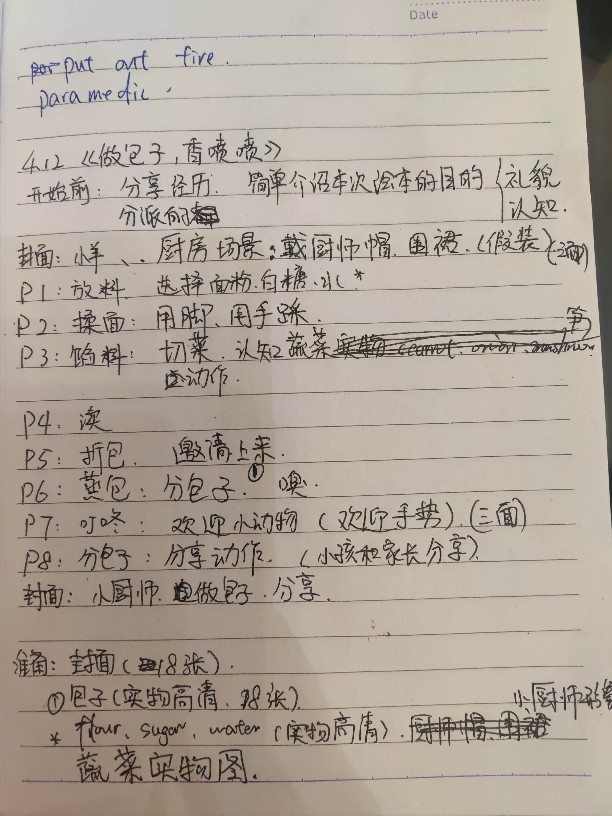 Date
put out fire.
paramedic.
4.12 《做包子,香喷喷》
开始前: 分享经历. 简单介绍本次绘本的目的 { 礼貌
分派 认知.
封面: 小羊、、厨房场景: 戴厨师帽. 围裙. (假装) (三面)
P1: 放料. 选择面粉.白糖.水 *
P2: 揉面: 用脚、用手揉. 等
P3: 馅料: 切菜. 认知蔬菜
动作.
P4. 滚
P5: 折包. 邀请上来.
P6: 蒸包: 分包子. ① 噢.
P7: 叮咚: 欢迎小动物 (欢迎手势). (三面)
P8: 分包子: 分享动作. (小孩和家长分享).
封面: 小厨师. 做包子. 分享.
准备: 封面 (18张).
① 包子 (实物高清、18张). 小厨师形象
* flour、sugar、water (实物高清).
蔬菜实物图.